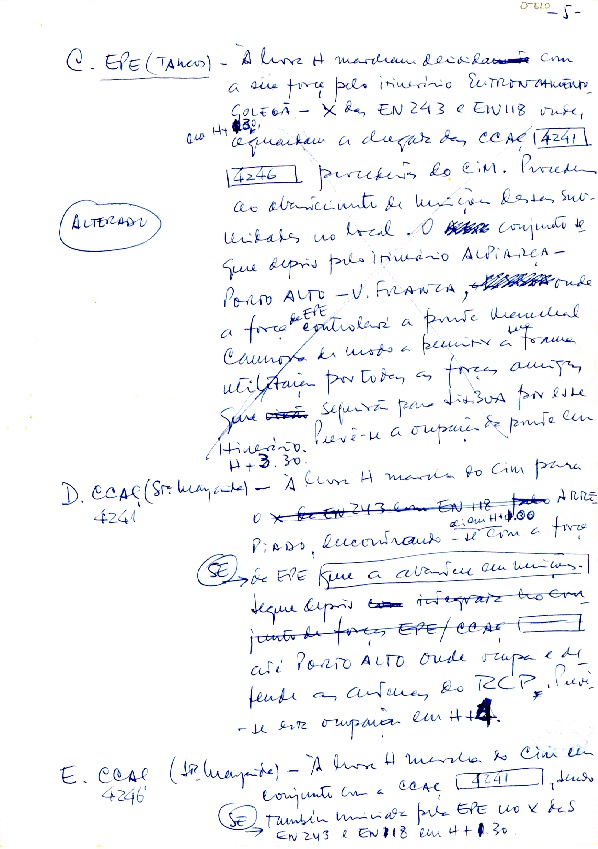 - 5 -
C. EPE (TANCOS) - À hora H marcham com
a sua força pelo itinerário ENTRONCAMENTO
GOLEGÃ - X das EN 243 e EN 118 onde,
em H+1.30,
aguardam a chegada das CCAÇ 4241
4246 procedentes do CIM. Procedem
ao abastecimento de munições dessas sub-
ALTERADO
unidades no local. O conjunto se-
gue depois pelo itinerário ALPIARÇA -
PORTO ALTO - V. FRANCA, onde
de EPE
a força controlará a ponte Marechal
Carmona de modo a permitir a sua
utilização por todas as forças amigas
que seguirão para LISBOA por este
itinerário. Prevê-se a ocupação da ponte em
H + 3.30.
D. CCAÇ (Stª Margarida) - À hora H marcha do CIM para
4241
o x da EN 243 com EN 118 ARRE
PIADO, encontrando-se com a força
aí em H+1.00
SE
de EPE que a abastece em munições.
Segue depois integrada no con-
junto de forças EPE/CCAÇ
até PORTO ALTO onde ocupa e de-
fende as antenas do RCP. Prevê-
-se esta ocupação em H+4.
E. CCAÇ (Stª Margarida) - À hora H marcha do CIM em
4246
conjunto com a CCAÇ 4241, sendo
SE
também municiada pela EPE no X das
EN 243 e EN 118 em H+1.30.